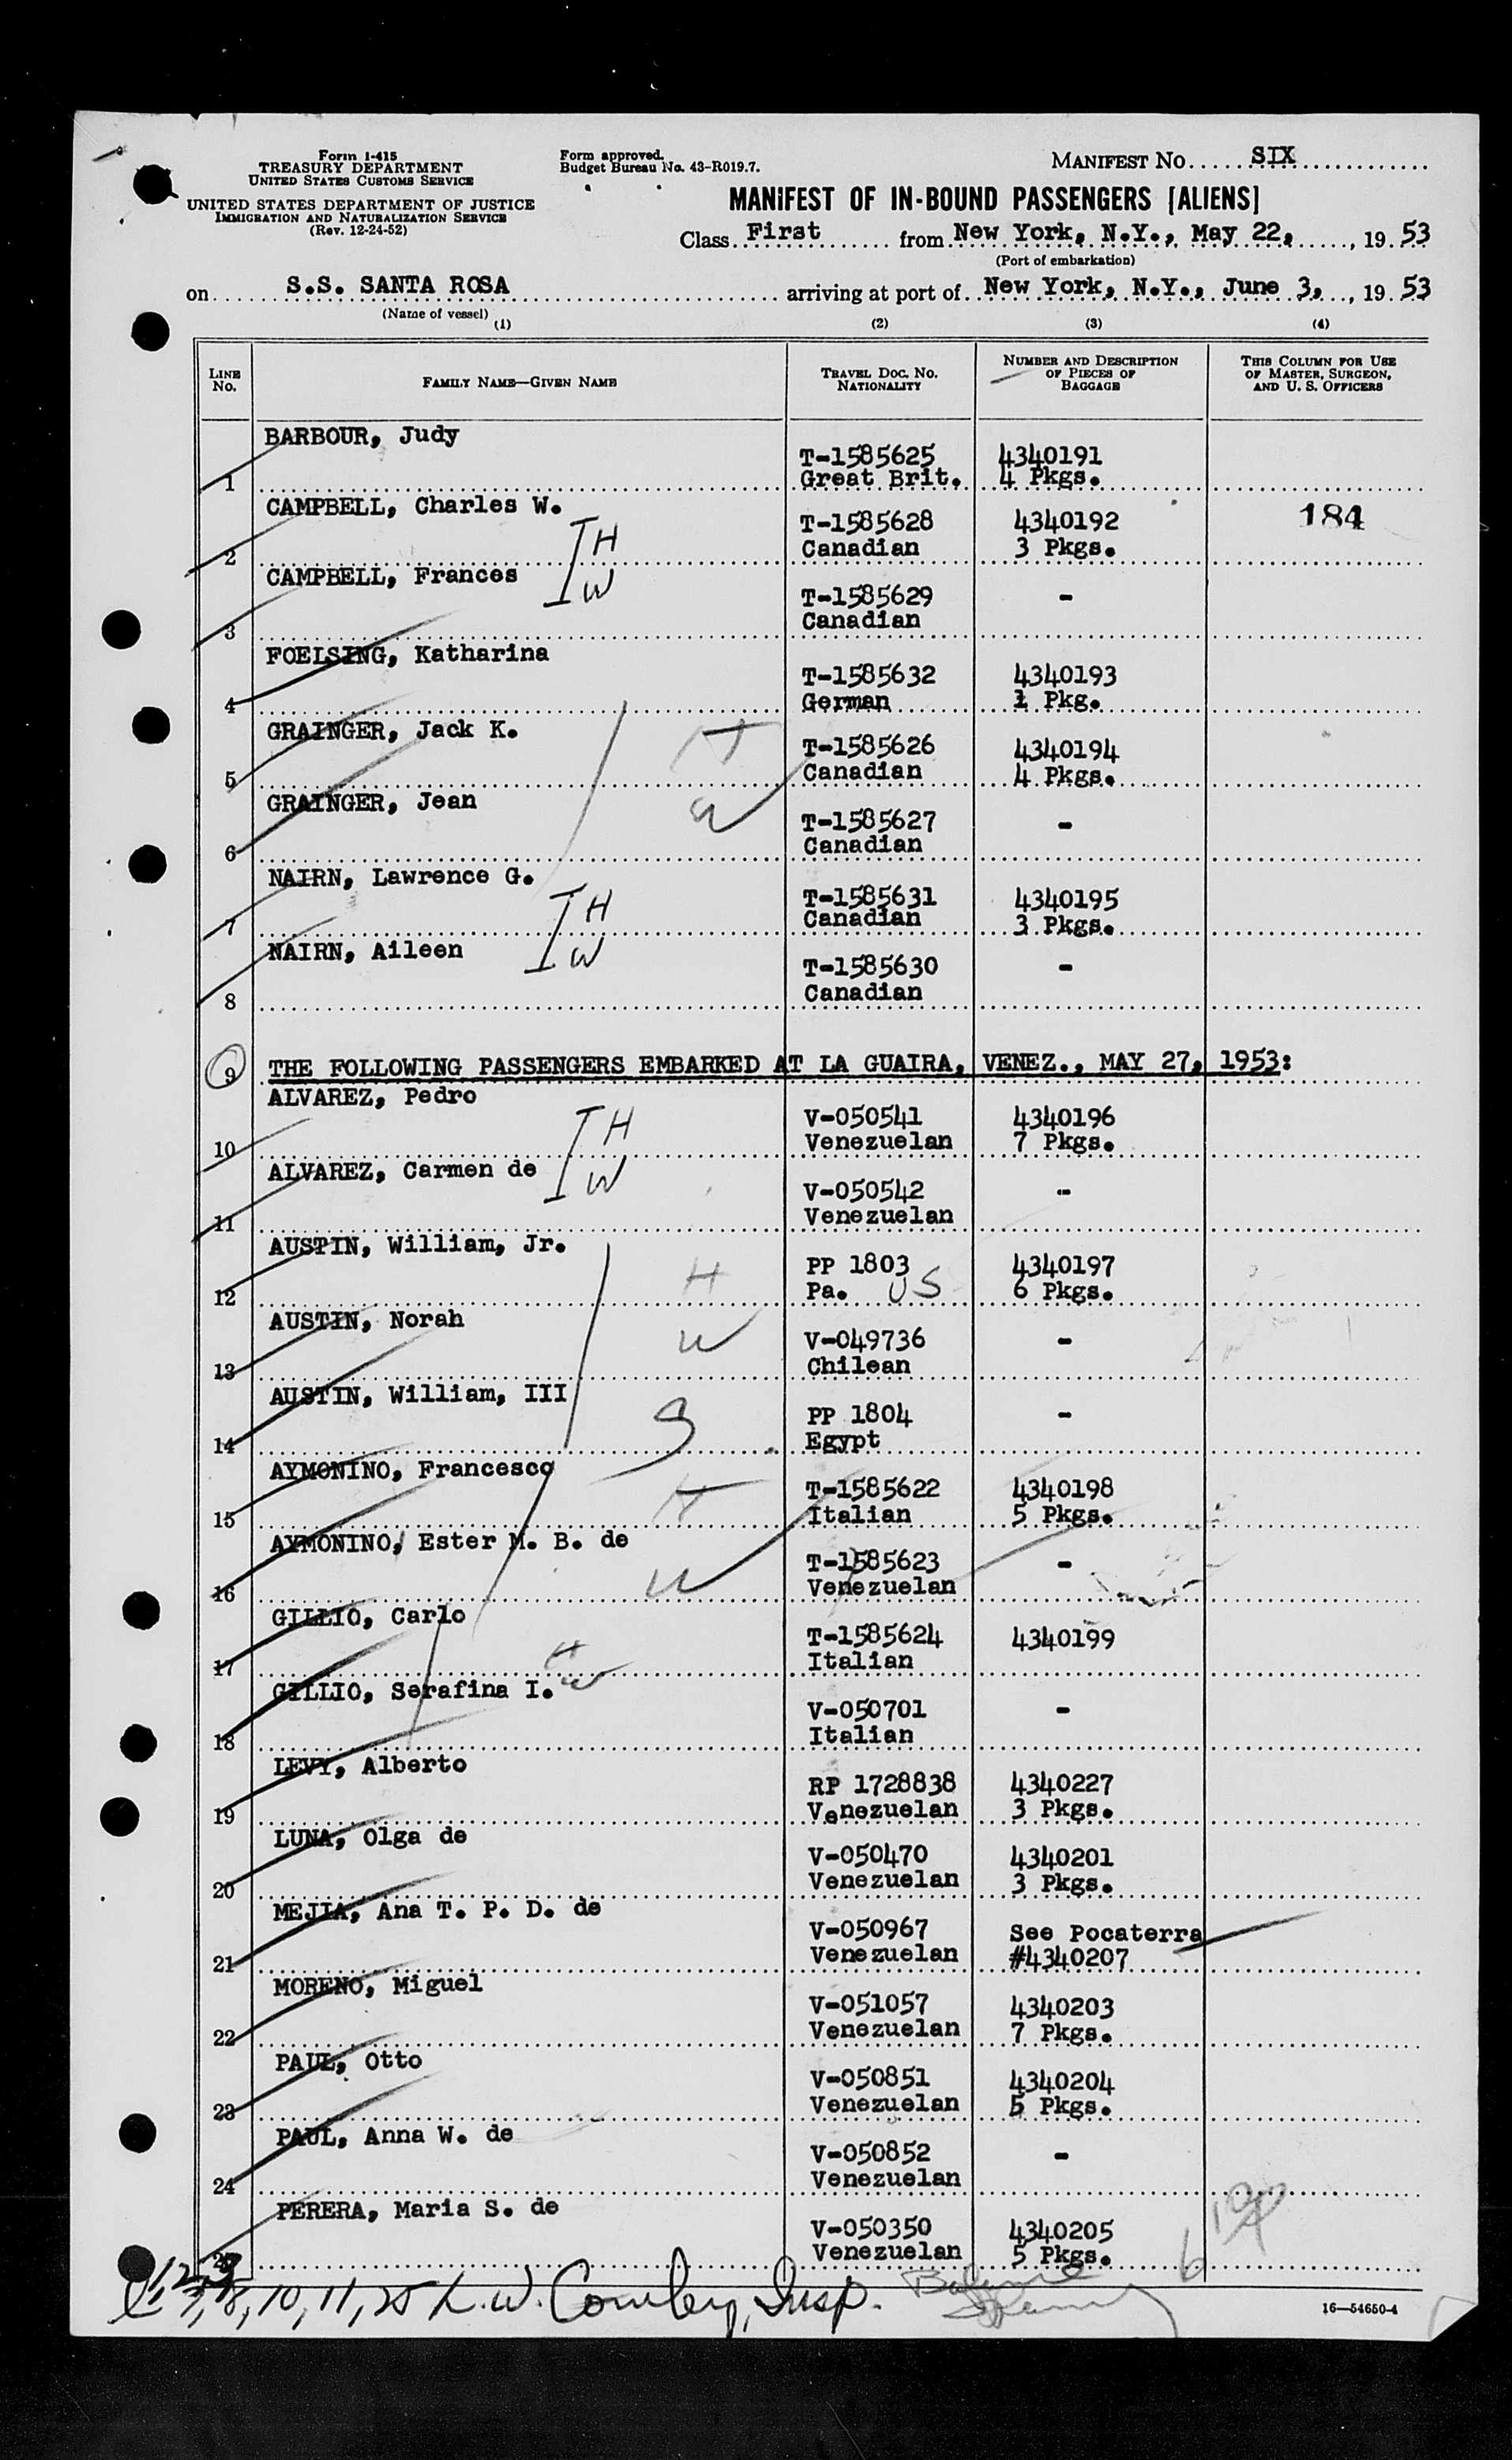 Form I-415
TREASURY DEPARTMENT
UNITED STATES CUSTOMS SERVICE
UNITED STATES DEPARTMENT OF JUSTICE
IMMIGRATION AND NATURALIZATION SERVICE
(Rev. 12-24-52)
Form approved.
Budget Bureau No. 43-R019.7.
MANIFEST NO. SIX
MANIFEST OF IN-BOUND PASSENGERS [ALIENS]
Class First from New York, N.Y., May 22, , 19 53
(Port of embarkation)
on S.S. SANTA ROSA arriving at port of New York, N.Y., June 3, , 19 53
(Name of vessel)
(1) (2) (3) (4)
LINE NO. FAMILY NAME—GIVEN NAME TRAVEL DOC. NO. NATIONALITY NUMBER AND DESCRIPTION OF PIECES OF BAGGAGE THIS COLUMN FOR USE OF MASTER, SURGEON, AND U. S. OFFICERS
BARBOUR, Judy
T-1585625 4340191
1 Great Brit. 4 Pkgs.
CAMPBELL, Charles W. H
T-1585628 4340192 184
2 Canadian 3 Pkgs.
CAMPBELL, Frances W
T-1585629 -
3 Canadian
FOELSING, Katharina
T-1585632 4340193
4 German 1 Pkg.
GRAINGER, Jack K. H
T-1585626 4340194
5 Canadian 4 Pkgs.
GRAINGER, Jean W
T-1585627 -
6 Canadian
NAIRN, Lawrence G. H
T-1585631 4340195
7 Canadian 3 Pkgs.
NAIRN, Aileen W
T-1585630 -
8 Canadian
9 THE FOLLOWING PASSENGERS EMBARKED AT LA GUAIRA, VENEZ., MAY 27, 1953:
ALVAREZ, Pedro H
V-050541 4340196
10 Venezuelan 7 Pkgs.
ALVAREZ, Carmen de W
V-050542 -
11 Venezuelan
AUSTIN, William, Jr. H
PP 1803 4340197
12 Pa. US 6 Pkgs.
AUSTIN, Norah W
V-049736 -
13 Chilean
AUSTIN, William, III S
PP 1804 -
14 Egypt
AYMONINO, Francesco H
T-1585622 4340198
15 Italian 5 Pkgs.
AYMONINO, Ester M. B. de W
T-1585623 -
16 Venezuelan
GILLIO, Carlo H
T-1585624 4340199
17 Italian
GILLIO, Serafina I. W
V-050701 -
18 Italian
LEVY, Alberto
RP 1728838 4340227
19 Venezuelan 3 Pkgs.
LUNA, Olga de
V-050470 4340201
20 Venezuelan 3 Pkgs.
MEJIA, Ana T. P. D. de
V-050967 See Pocaterra
21 Venezuelan #4340207
MORENO, Miguel
V-051057 4340203
22 Venezuelan 7 Pkgs.
PAUL, Otto
V-050851 4340204
23 Venezuelan 5 Pkgs.
PAUL, Anna W. de
V-050852 -
24 Venezuelan
PERERA, Maria S. de
V-050350 4340205
25 Venezuelan 5 Pkgs.
7, 8, 10, 11, 25 L. W. Insp.
16—54650-4